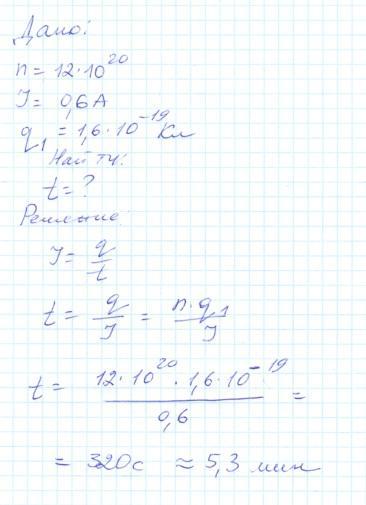 Дано:
n = 12·10²⁰
J = 0,6 А
q₁ = 1,6·10⁻¹⁹ Кл
Найти:
t = ?
Решение:
J = q/t
t = q/J = n·q₁/J
t = 12·10²⁰·1,6·10⁻¹⁹/0,6 =
= 320 с ≈ 5,3 мин